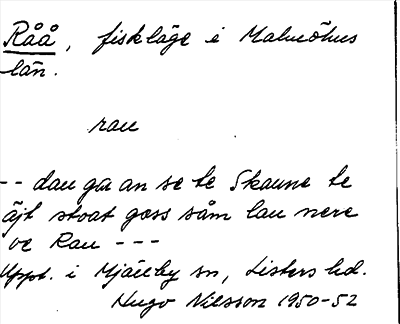 Råå, fiskläge i Malmöhus
län.
rau
-- dau ga an se te Skaune te
äjt stoat goss såm lau nere
ve Rau ---
Uppt. i Mjällby sn, Listers hd.
Hugo Nilsson 1950-52